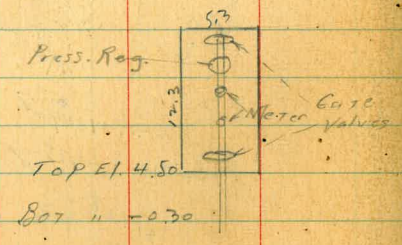 5.3
Press. Reg.
12.3
Meter
Gate
Valves
Top El. 4.50
Bot " -0.30